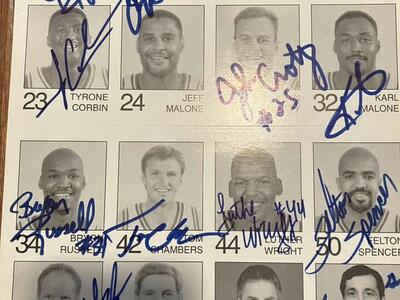 23 TYRONE CORBIN
24 JEFF MALONE
J Crotty
#25
32 KARL MALONE
Bryon Russell
34 BRYON RUSSELL
42 TOM CHAMBERS
Luther Wright #44
44 LUTHER WRIGHT
Felton Spencer
50 FELTON SPENCER